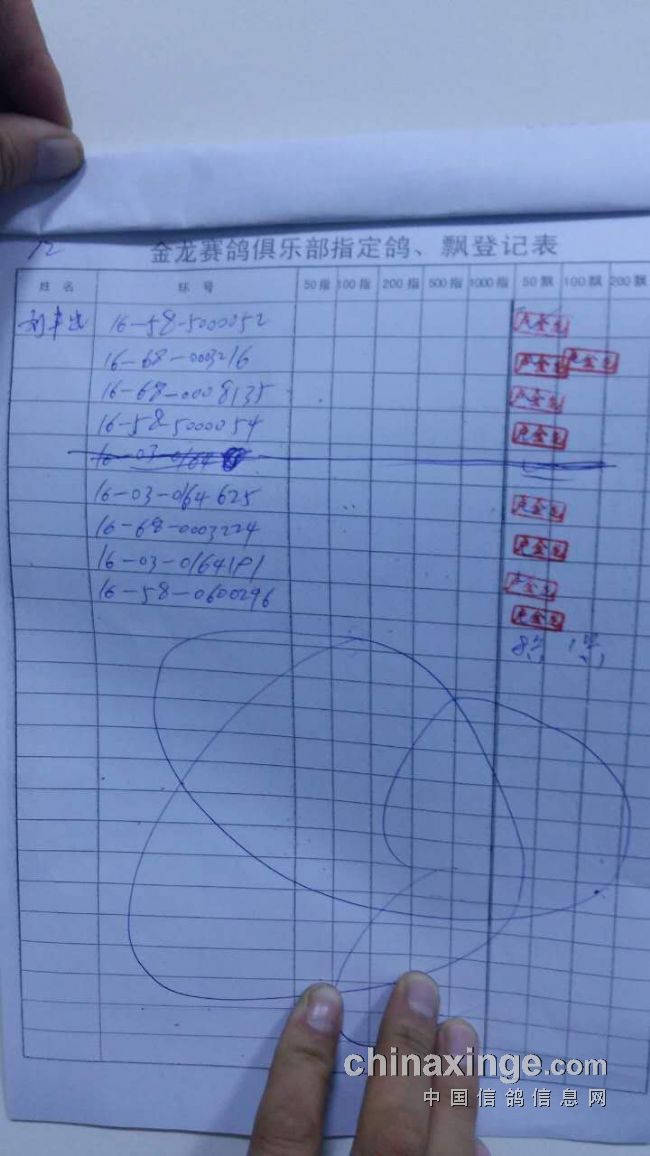 12
金龙赛鸽俱乐部指定鸽、飘登记表
姓 名 环 号 50指 100指 200指 500指 1000指 50飘 100飘 200飘
16-58-5000052
16-68-0003216
16-68-0008135
16-58-5000054
16-03-0164
16-03-0164625
16-68-0003224
16-03-0164191
16-58-0600296
8 1
chinaxinge.com
中国信鸽信息网